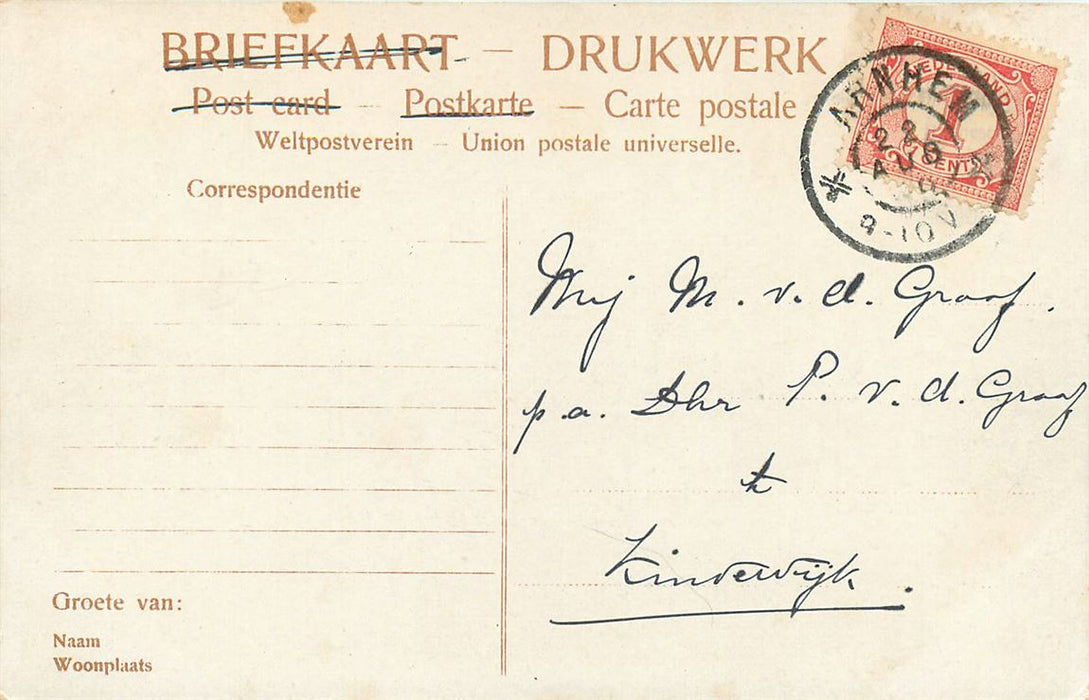 BRIEFKAART – DRUKWERK
Post card – Postkarte – Carte postale
Weltpostverein – Union postale universelle.
Correspondentie
NEDERLAND
1
CENT
ARNHEM
9-10V
Mej M. v. d. Graaf.
p.a. Dhr P. v. d. Graaf
te
Kinderdijk.
Groete van:
Naam
Woonplaats